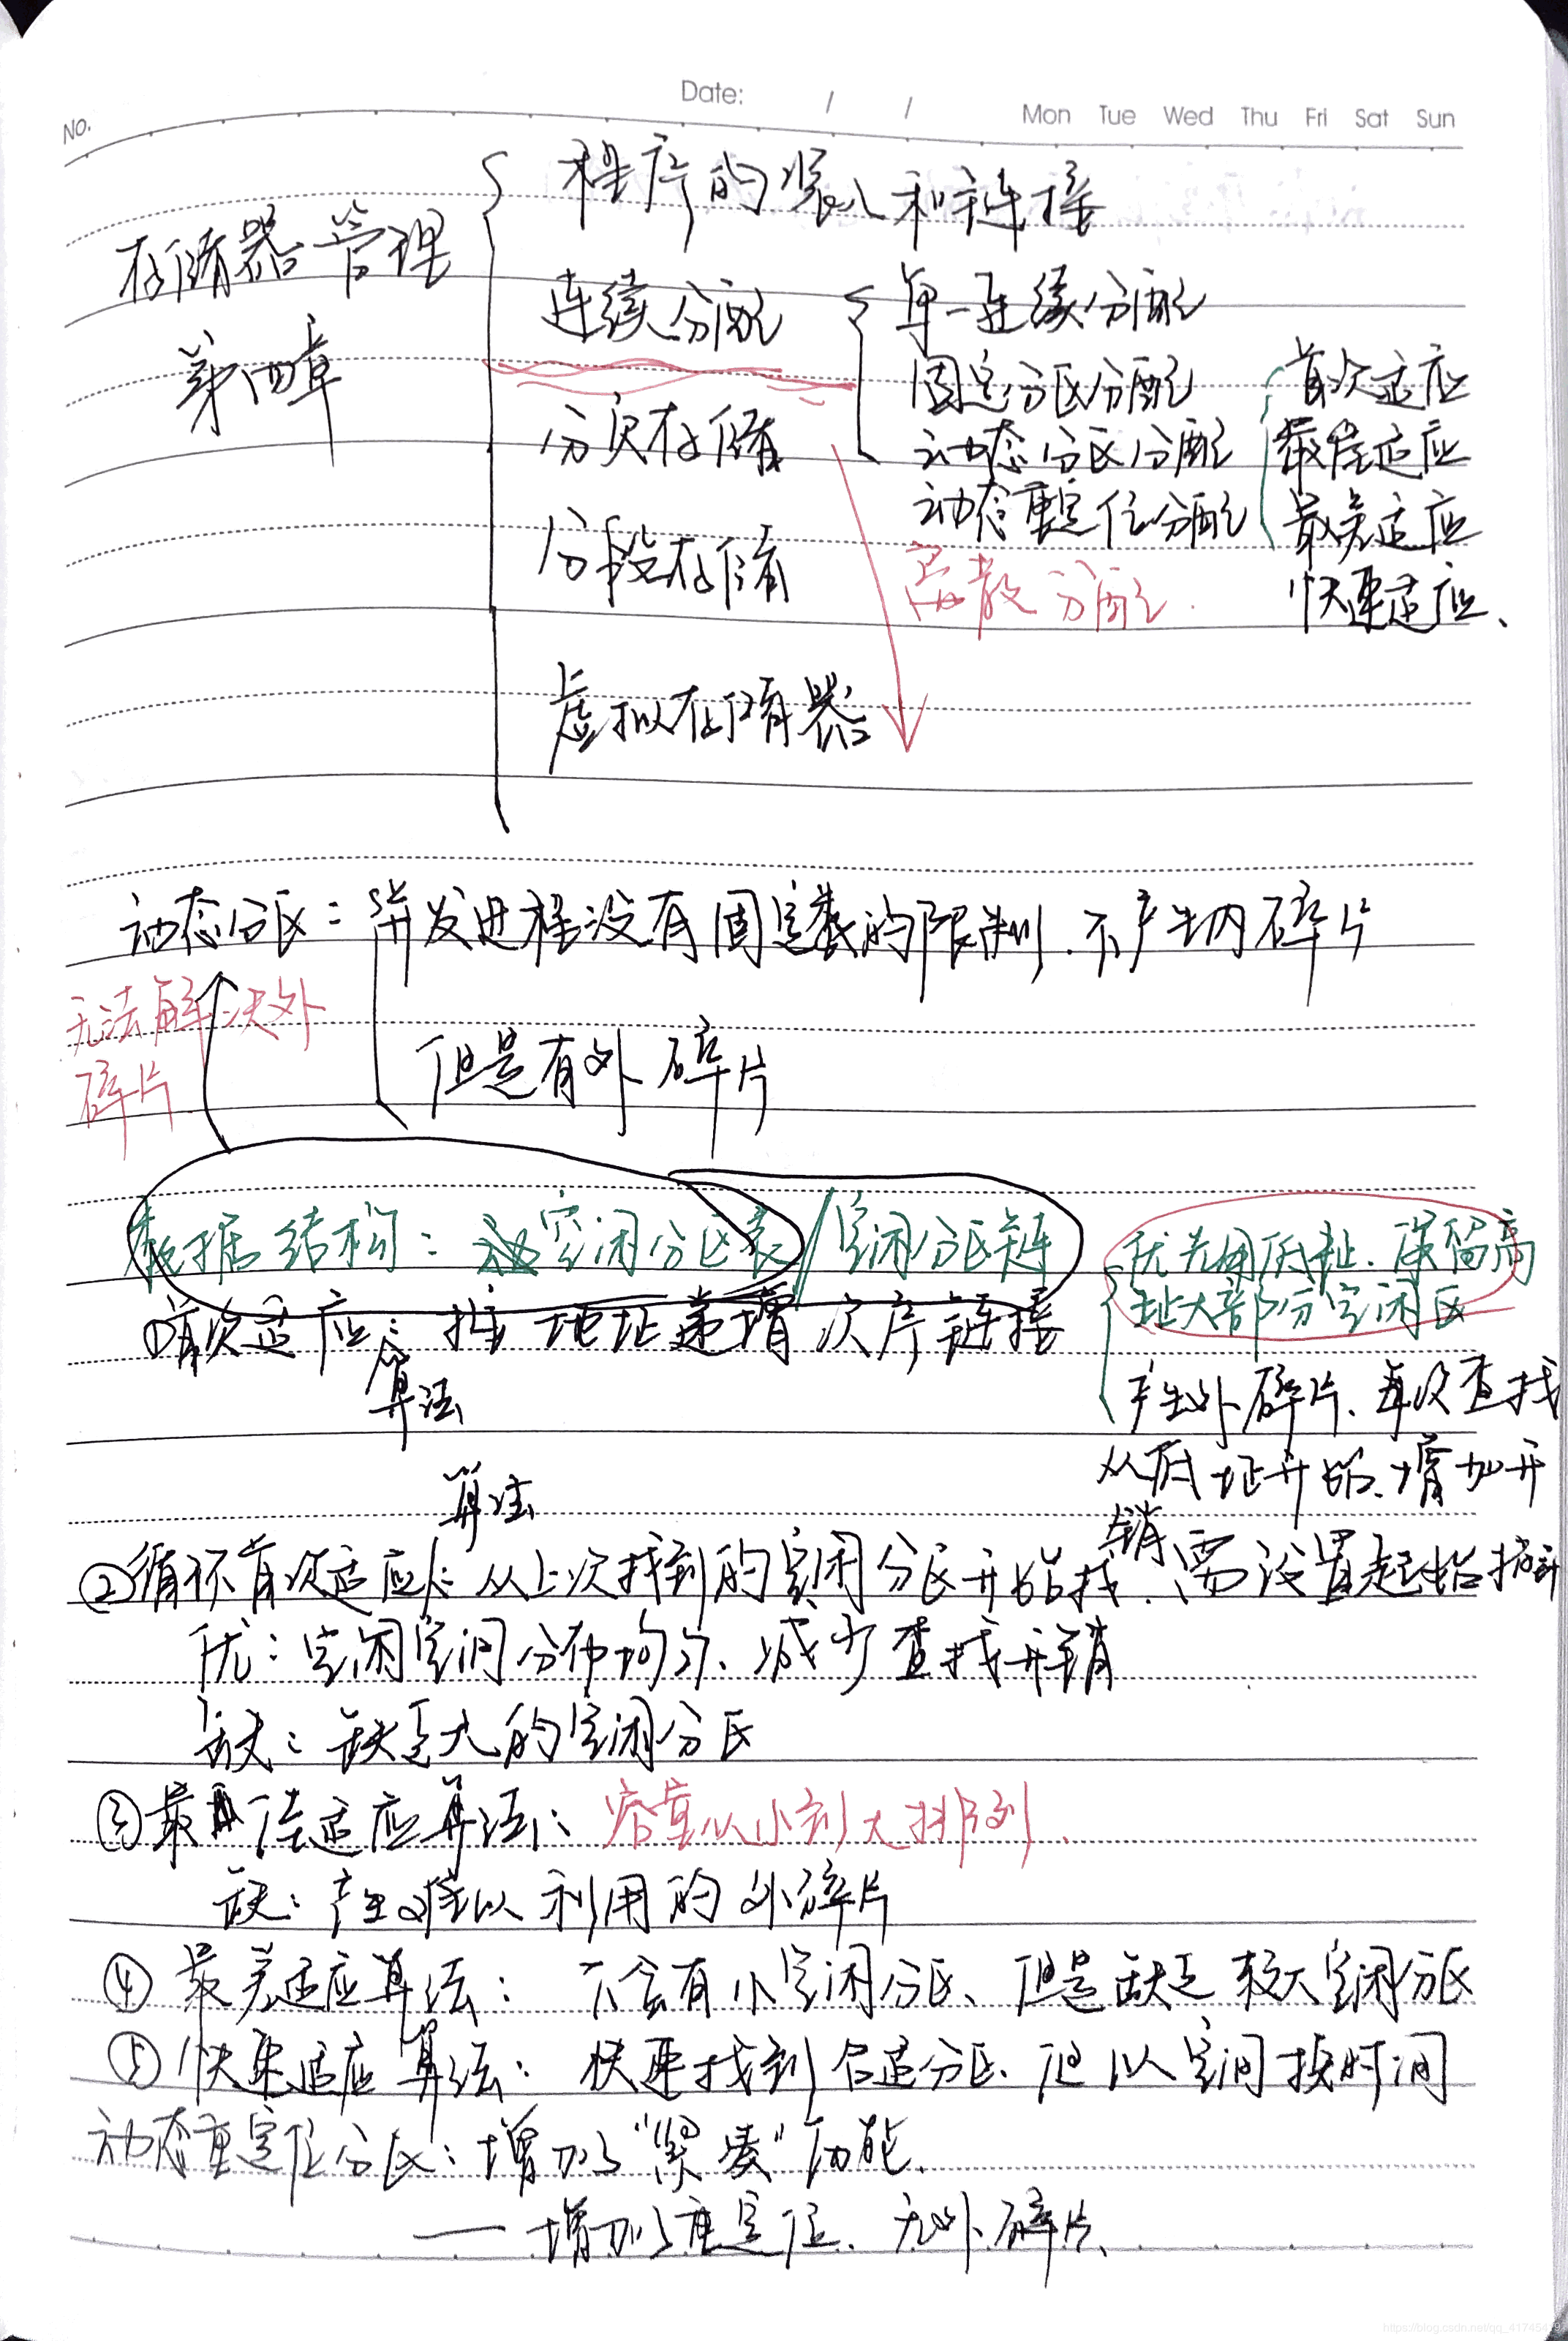 No.
Date: / /
Mon Tue Wed Thu Fri Sat Sun
存储器管理
第四章
程序的装入和链接
连续分配
分页存储
分段存储
虚拟存储器
单一连续分配
固定分区分配
动态分区分配
动态重定位分配
离散分配.
首次适应
最佳适应
最差适应
快速适应、
动态分区：并发进程没有固定数的限制.不产生内碎片
但是有外碎片
无法解决外
碎片
数据结构：空闲分区表/空闲分区链
①首次适应：按地址递增次序链接
算法
优先用低址.保留高
址大部分空闲区
产生外碎片、每次查找
从低址开始.增加开
销
算法
②循环首次适应：从上次找到的空闲分区开始找.需设置起始指针
优：空闲空间分布均匀、减少查找开销
缺：缺乏大的空闲分区
③最佳适应算法：容量从小到大排列.
缺：产生难以利用的外碎片
④最差适应算法：不会有小空闲分区、但是缺乏较大空闲分区
⑤快速适应算法：快速找到合适分区、但以空间换时间
动态重定位分区：增加了“紧凑”功能.
——增加了重定位、无外碎片、